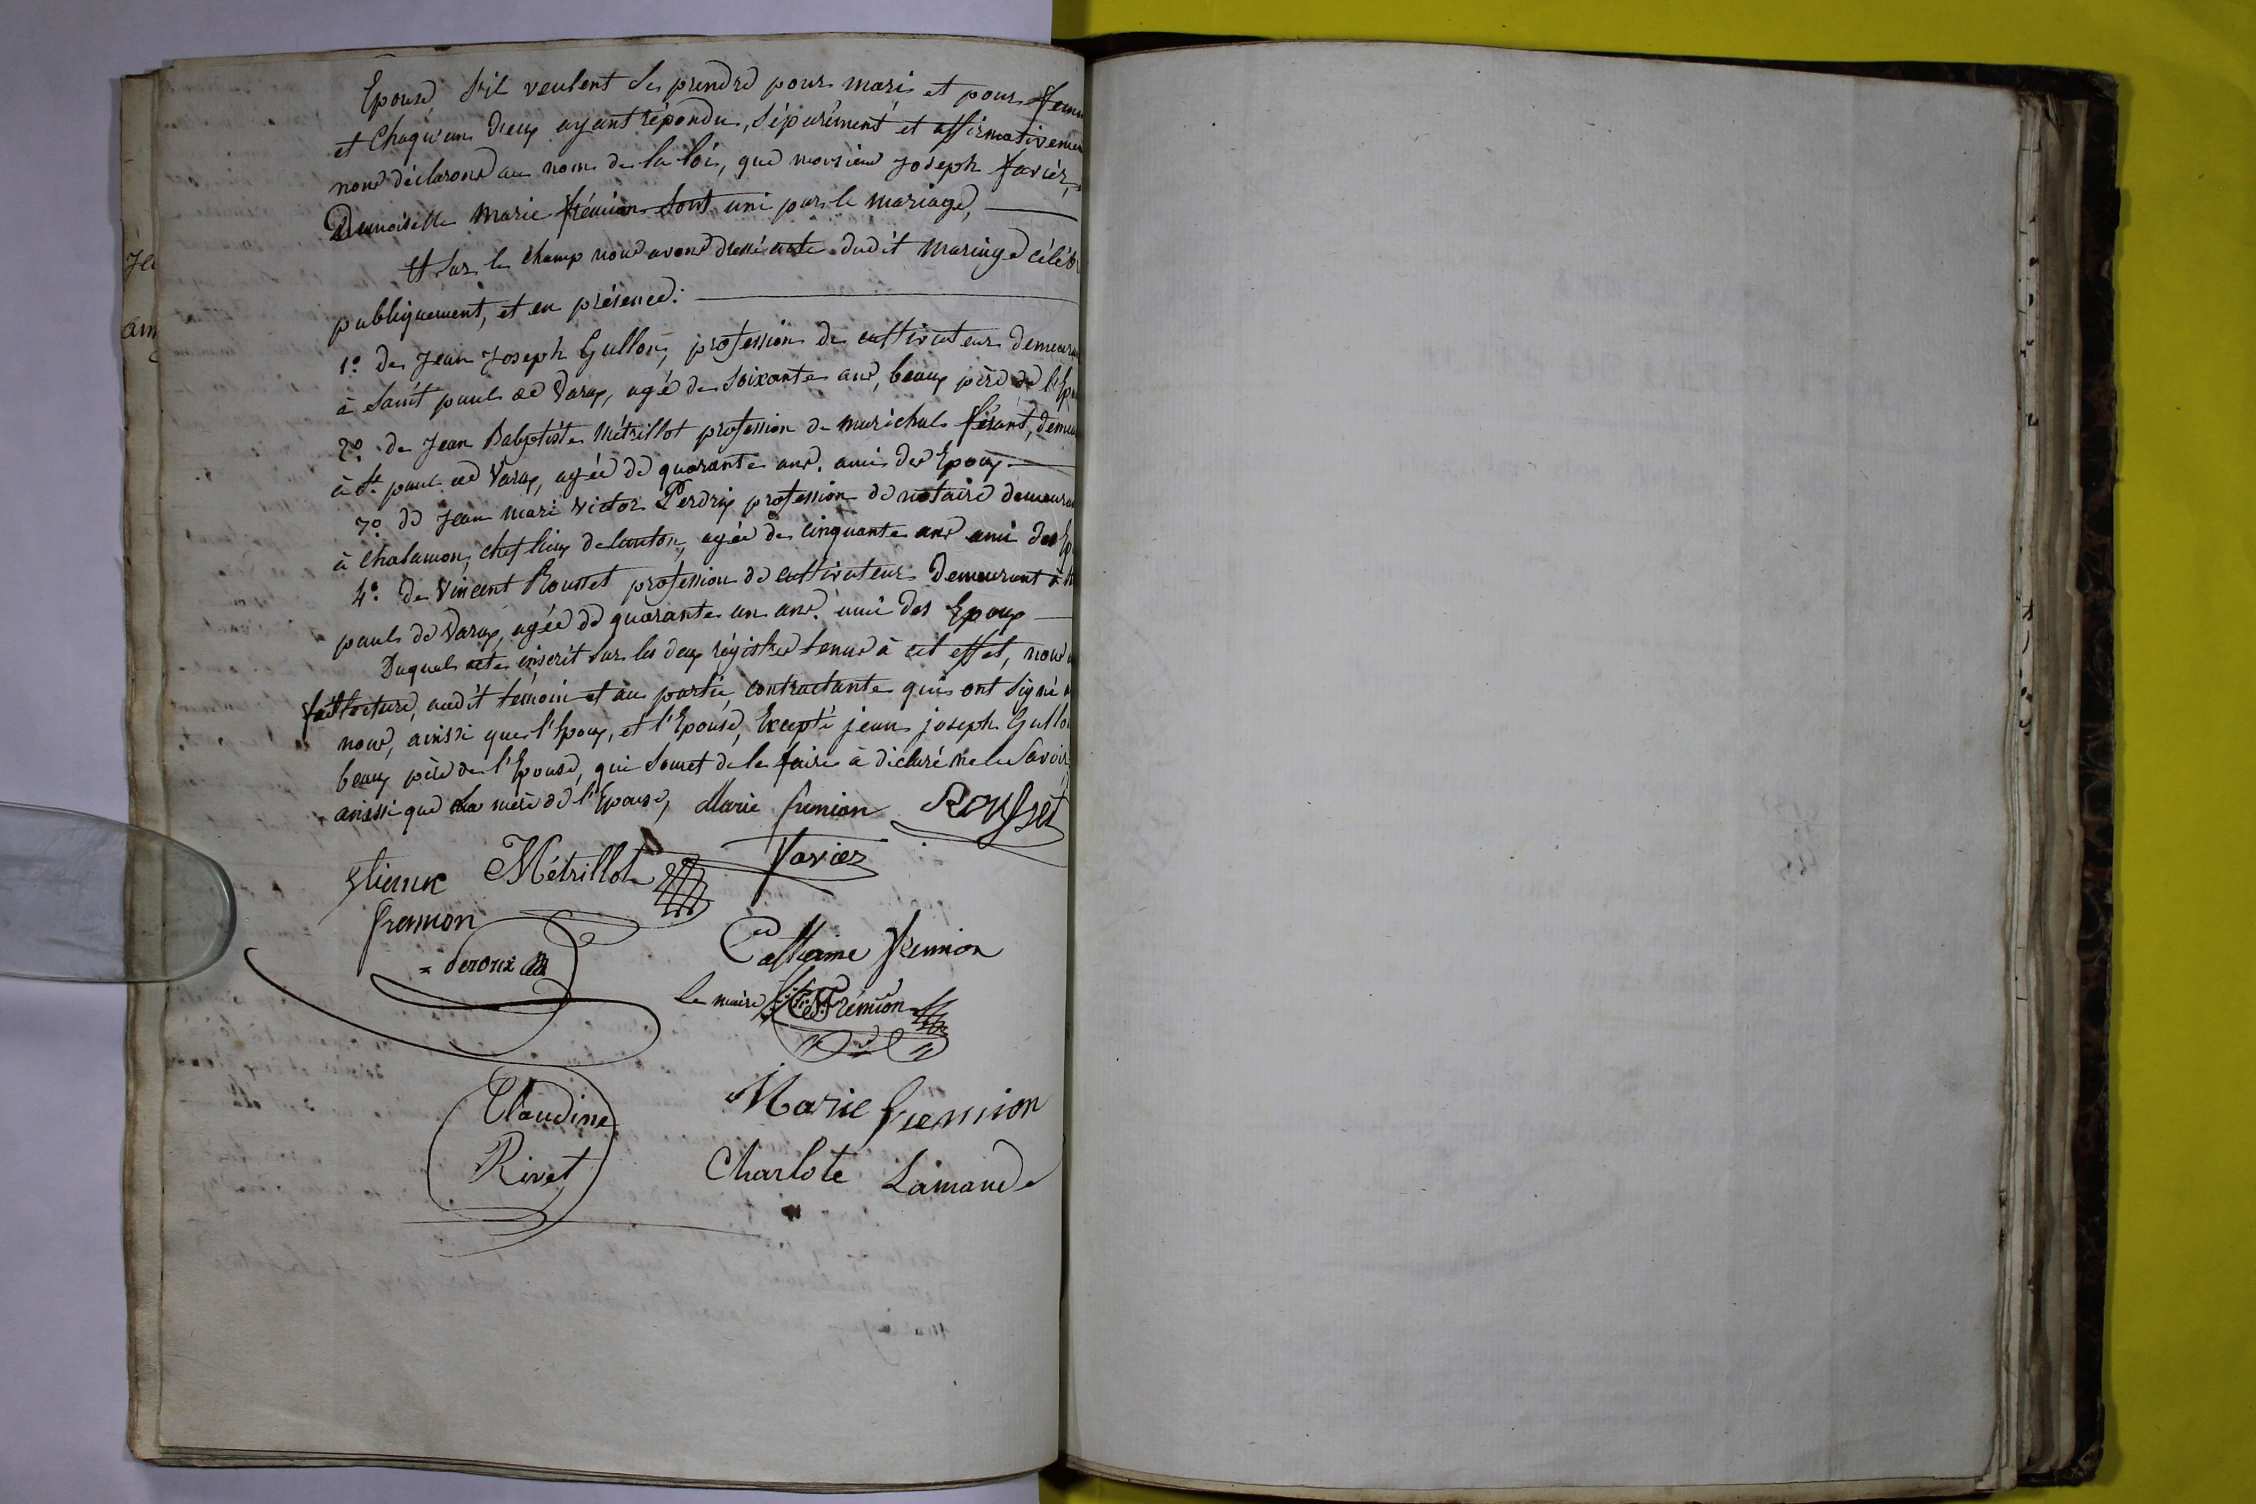 Epouse, s'il veulent se prendre pour mari et pour femm
et Chaqu'un d'eux ayant répondu, séparément et affirmativemen
nous déclarons au nom de la loi, que monsieur Joseph favier,
Demoiselle Marie frémion sont uni par le mariage,
Et sur le champ nous avons dressé acte dudit mariage céléb
publiquement, et en présence:
1º. de Jean Joseph Gullon, profession de cultivateur demeura
à Saint paul de Varax, agé de soixante ans, beaux père de l'Ep
2º. de Jean Babptiste Métrillot profession de marichal férant, demeu
à St. paul de Varax, agée de quarante ans. ami des Epoux
3º. de Jean mari victor Perdrix profession de notaire demeura
à Chalamon, chef lieux de canton, agée de cinquante ans ami des Ep
4º. de Vincent Rousset profession de cultivateur Demeurant à
paul de Varax, agée de quarante un ans. ami des Epoux
Duquel acte inscrit sur les deux régistres tenus à cet effet, nous
fait lecture, audit témoin et au partie, contractante qui ont signé
nous, ainssi que l'Epoux, et l'Epouse, Excepté jean joseph Gullo
beaux père de l'Epouse, qui de le faire à diclaré ne le Savoir
ainssi que la mère de l'Epouse, Marie fremion Rousset
Etienne Métrillot Favier
fremion
deroux Catherine fremion
Le maire Frémion
Claudine Marie fremion
Rivet Charlote Lamande